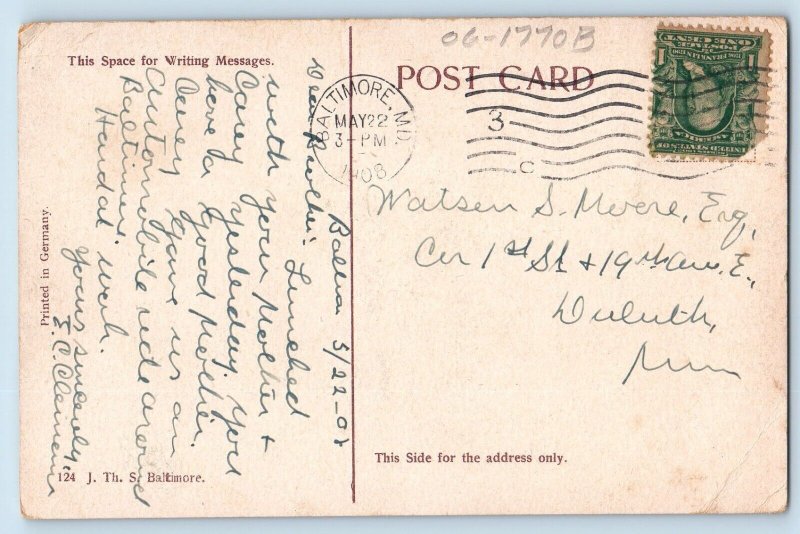 This Space for Writing Messages.
Balto. 5/22-08
Dear Brother: Lunched
with your Mother +
Carey yesterday. You
have a good Mother.
Carey gave us an
Automobile ride around
Baltimore.
Yours sincerely,
Printed in Germany.
124 J. Th. S. Baltimore.
OG-1770B
POST CARD
BALTIMORE, MD.
MAY 22
3-PM
1908
3
C
1 ONE CENT 1
POSTAGE
FRANKLIN
UNITED STATES OF
AMERICA
Watson S. Moore, Esq,
Cor 1st St + 19th Ave. E.,
Duluth,
Minn
This Side for the address only.